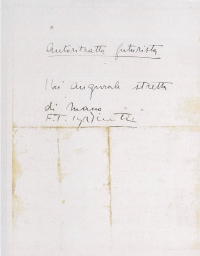 Autoritratto futurista
Un' augurale stretta
di mano
F.T. Marinetti